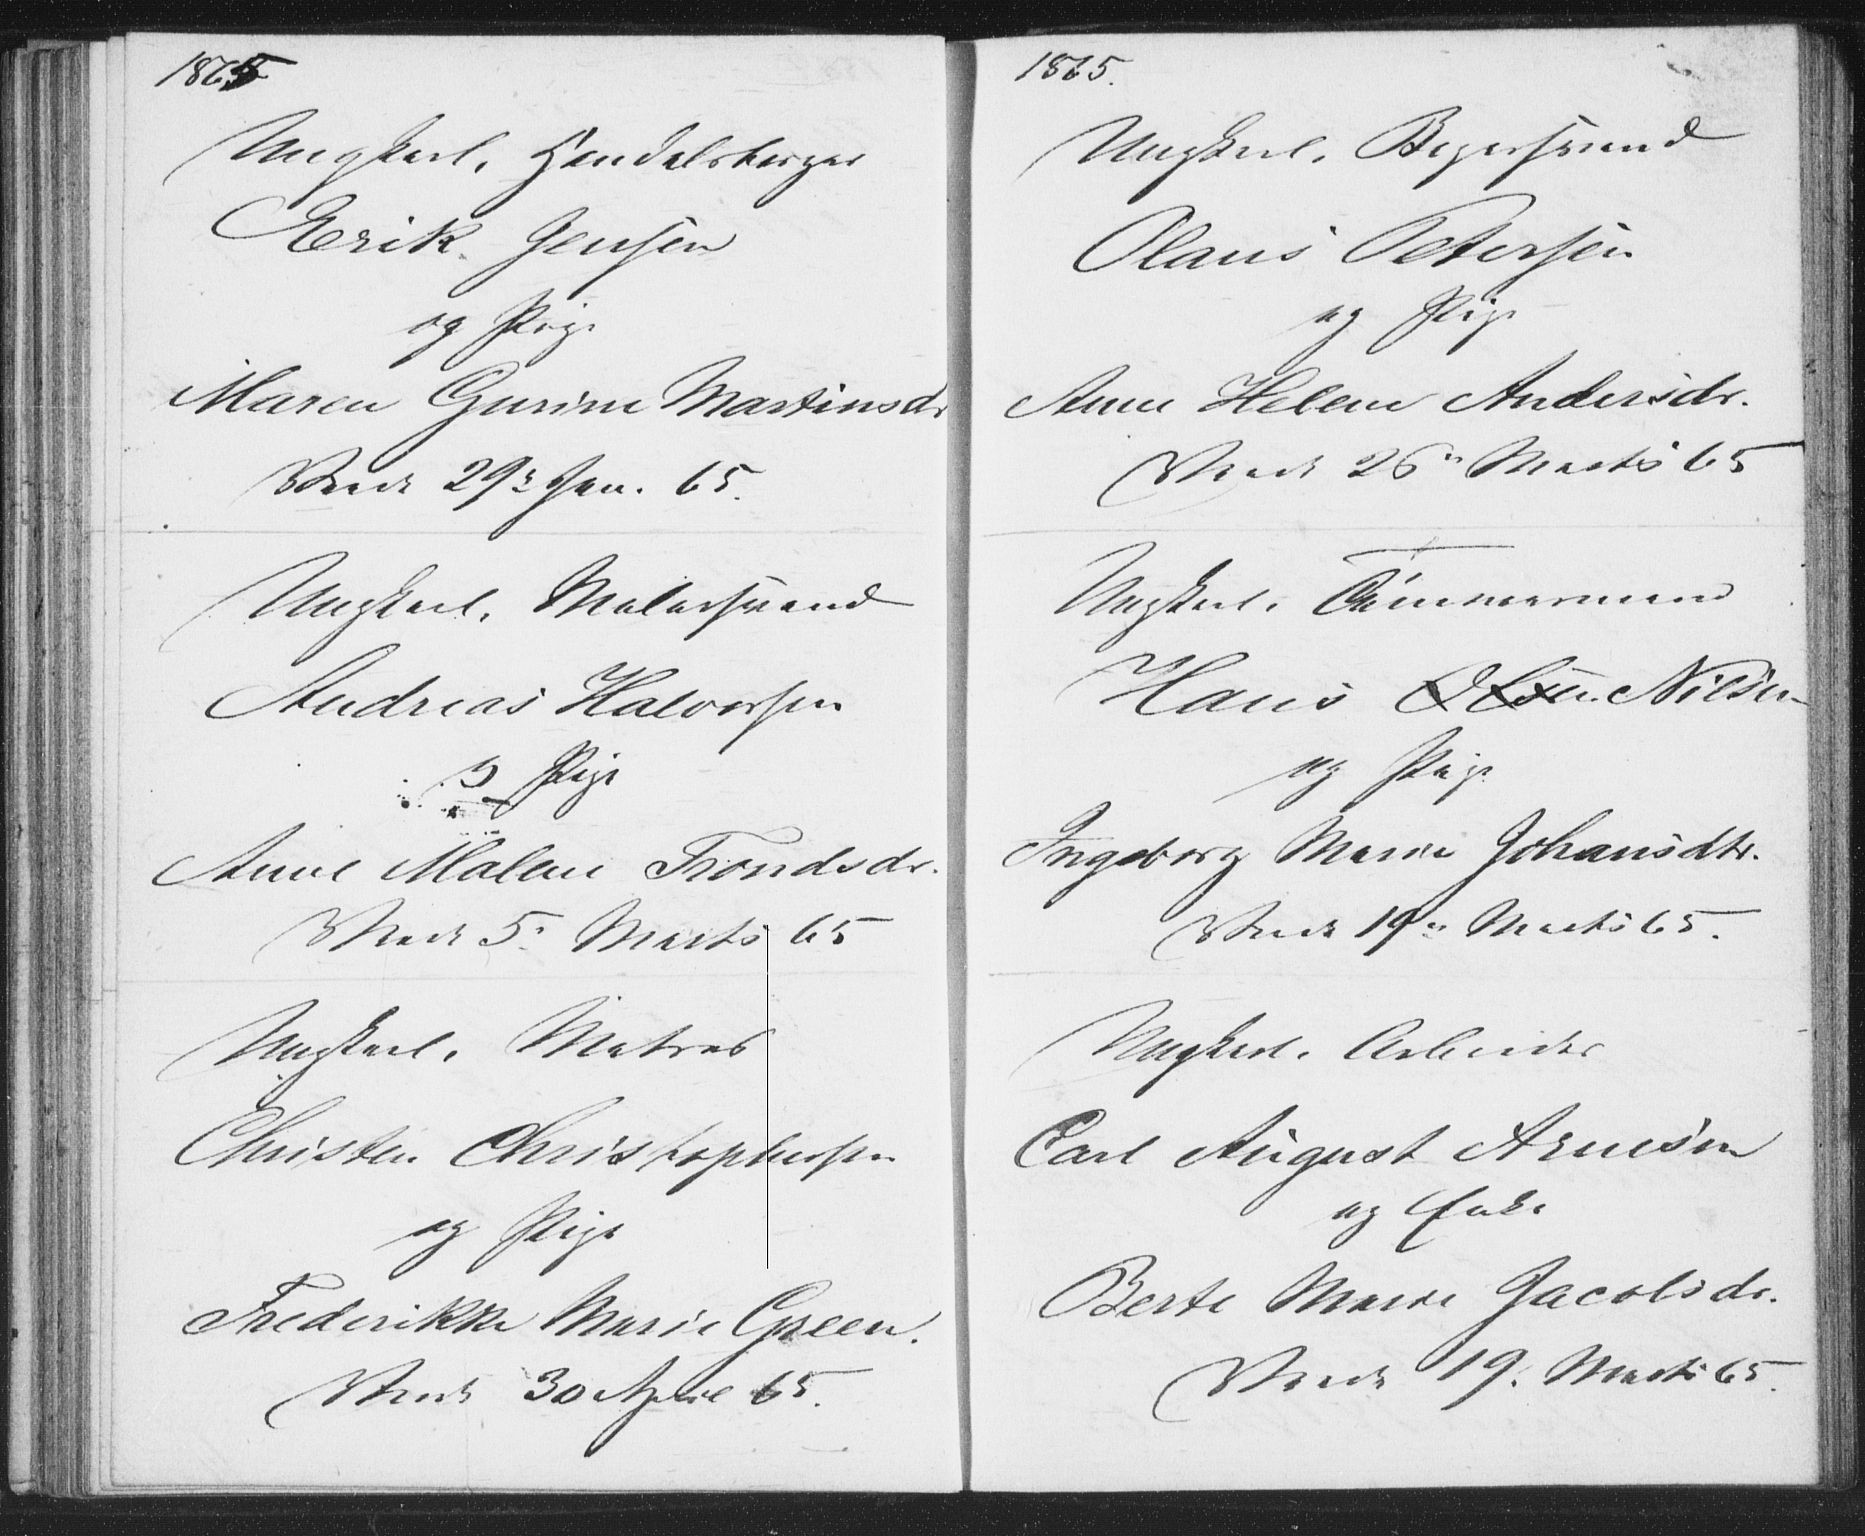 1865
Ungkarl, Handelsborger
Erik Jensen
og Pige
Maren Gurine Martinsdr
Viede 29de Jan. 65.
Ungkarl, Malersvend
Andreas Halvorsen
og Pige
Anne Malene Trondsdr.
Viede 5. Marts 65
Ungkarl, Matros
Christen Christophersen
og Pige
Frederikke Marie Green.
Viede 30 April 65.
1865.
Ungkarl, Bagersvend
Olaus Petersen
og Pige
Anne Helene Andersdr.
Viede 26 Marts 65
Ungkarl. Tømmermand
Hans Olsen. Nilsen
og Pige
Ingeborg Marie Johansdtr.
Viede 19 Marts 65.
Ungkarl. Arbeider
Carl August Arnesen
og Enke
Berte Marie Jacobsdr.
Viede 19. Marts 65.